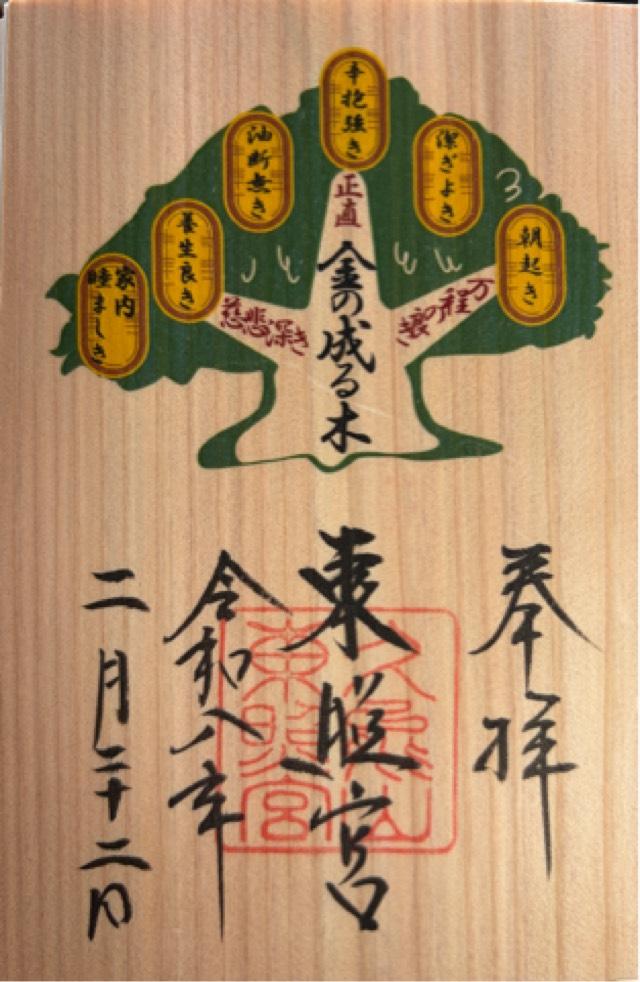 辛抱強き
潔ぎよき
朝起き
油断無き
養生良き
家内
睦ましき
正直
万程の
慈悲深き
金の成る木
奉拝
東照宮
久能山
東照宮
令和八年
二月二十二日